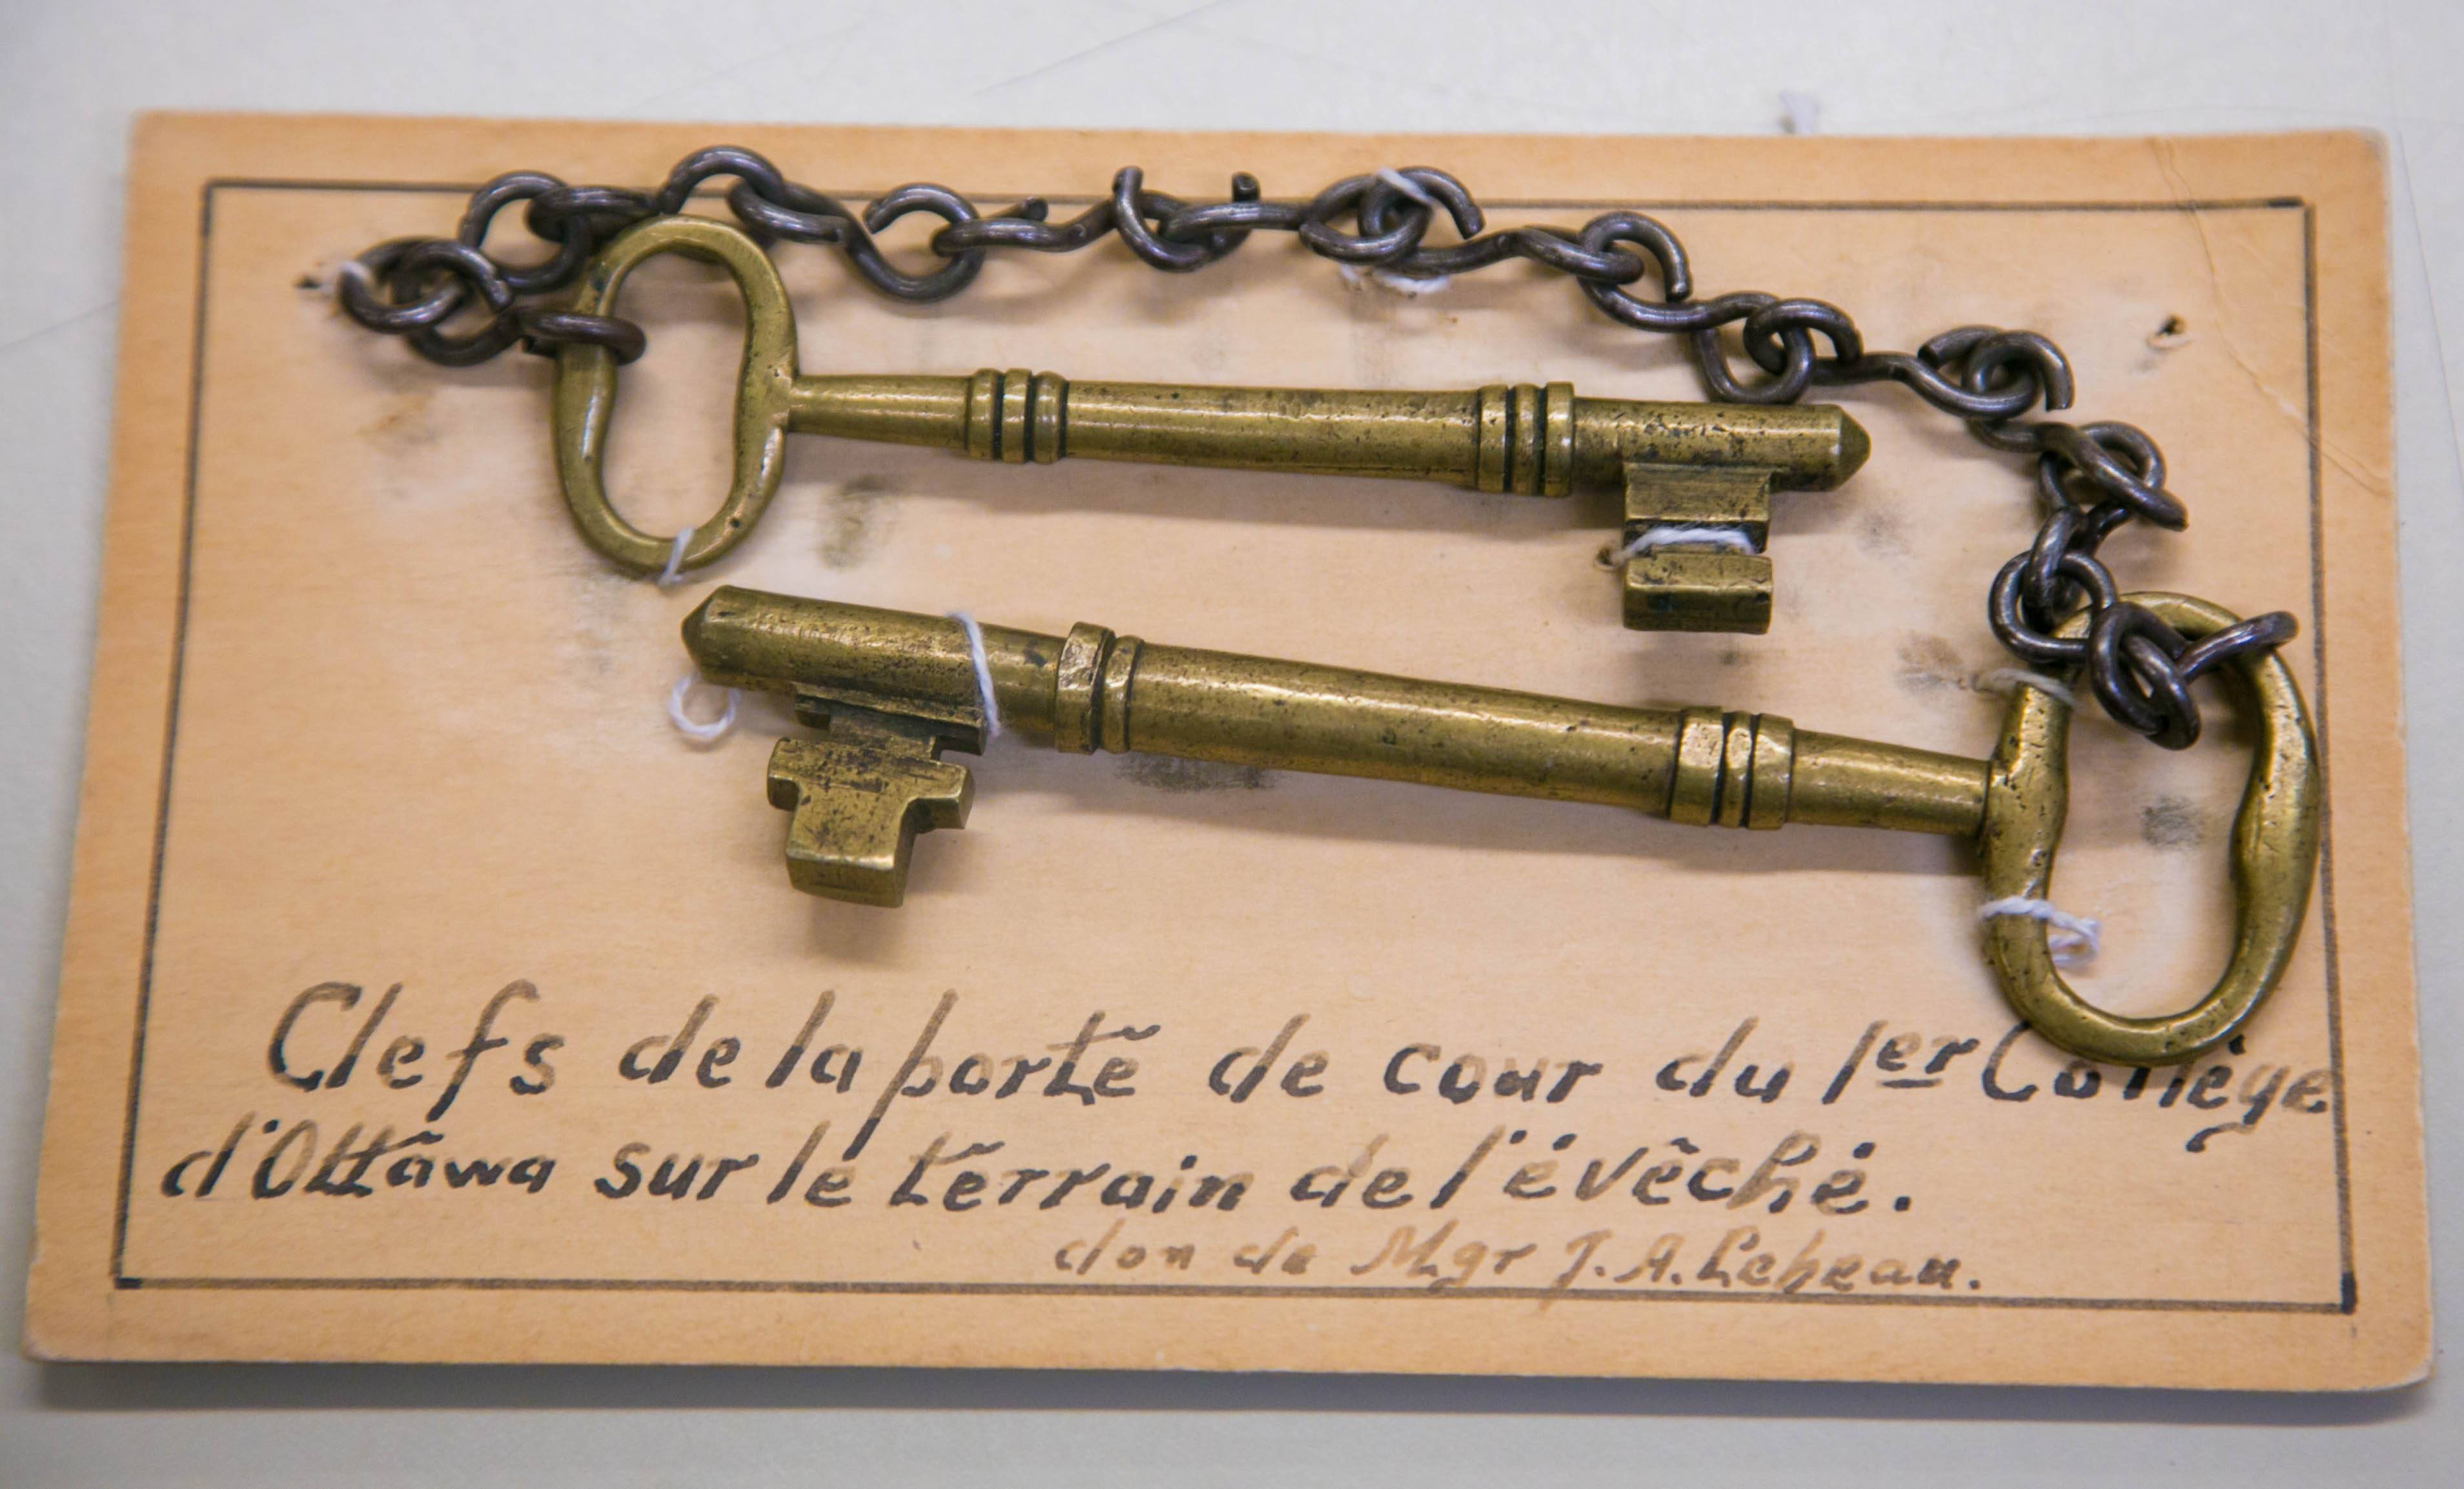 Clefs de la porte de cour du 1er Collège
d'Ottawa sur le terrain de l'évêché.
don de Mgr J. A. Lebeau.